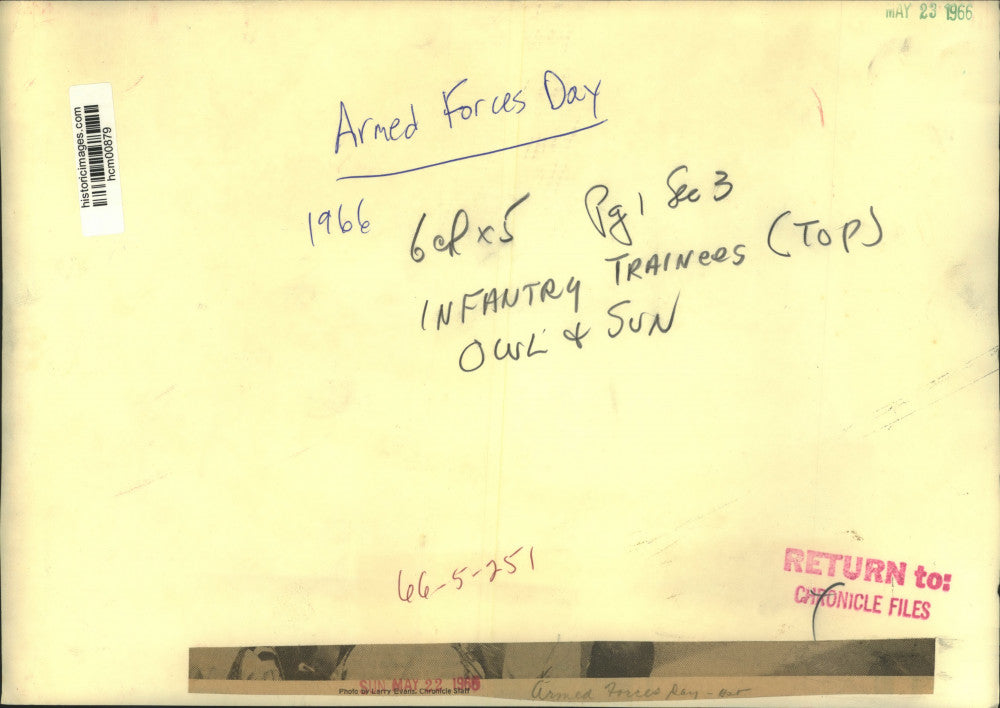 MAY 23 1966
historicimages.com
hcm00879
Armed Forces Day
1966
6 col x 5 Pg 1 Sec 3
INFANTRY TRAINEES (TOP)
OWL & SUN
66-5-251
RETURN to:
CHRONICLE FILES
SUN MAY 22 1966
Photo by Larry Evans, Chronicle Staff
Armed Forces Day -